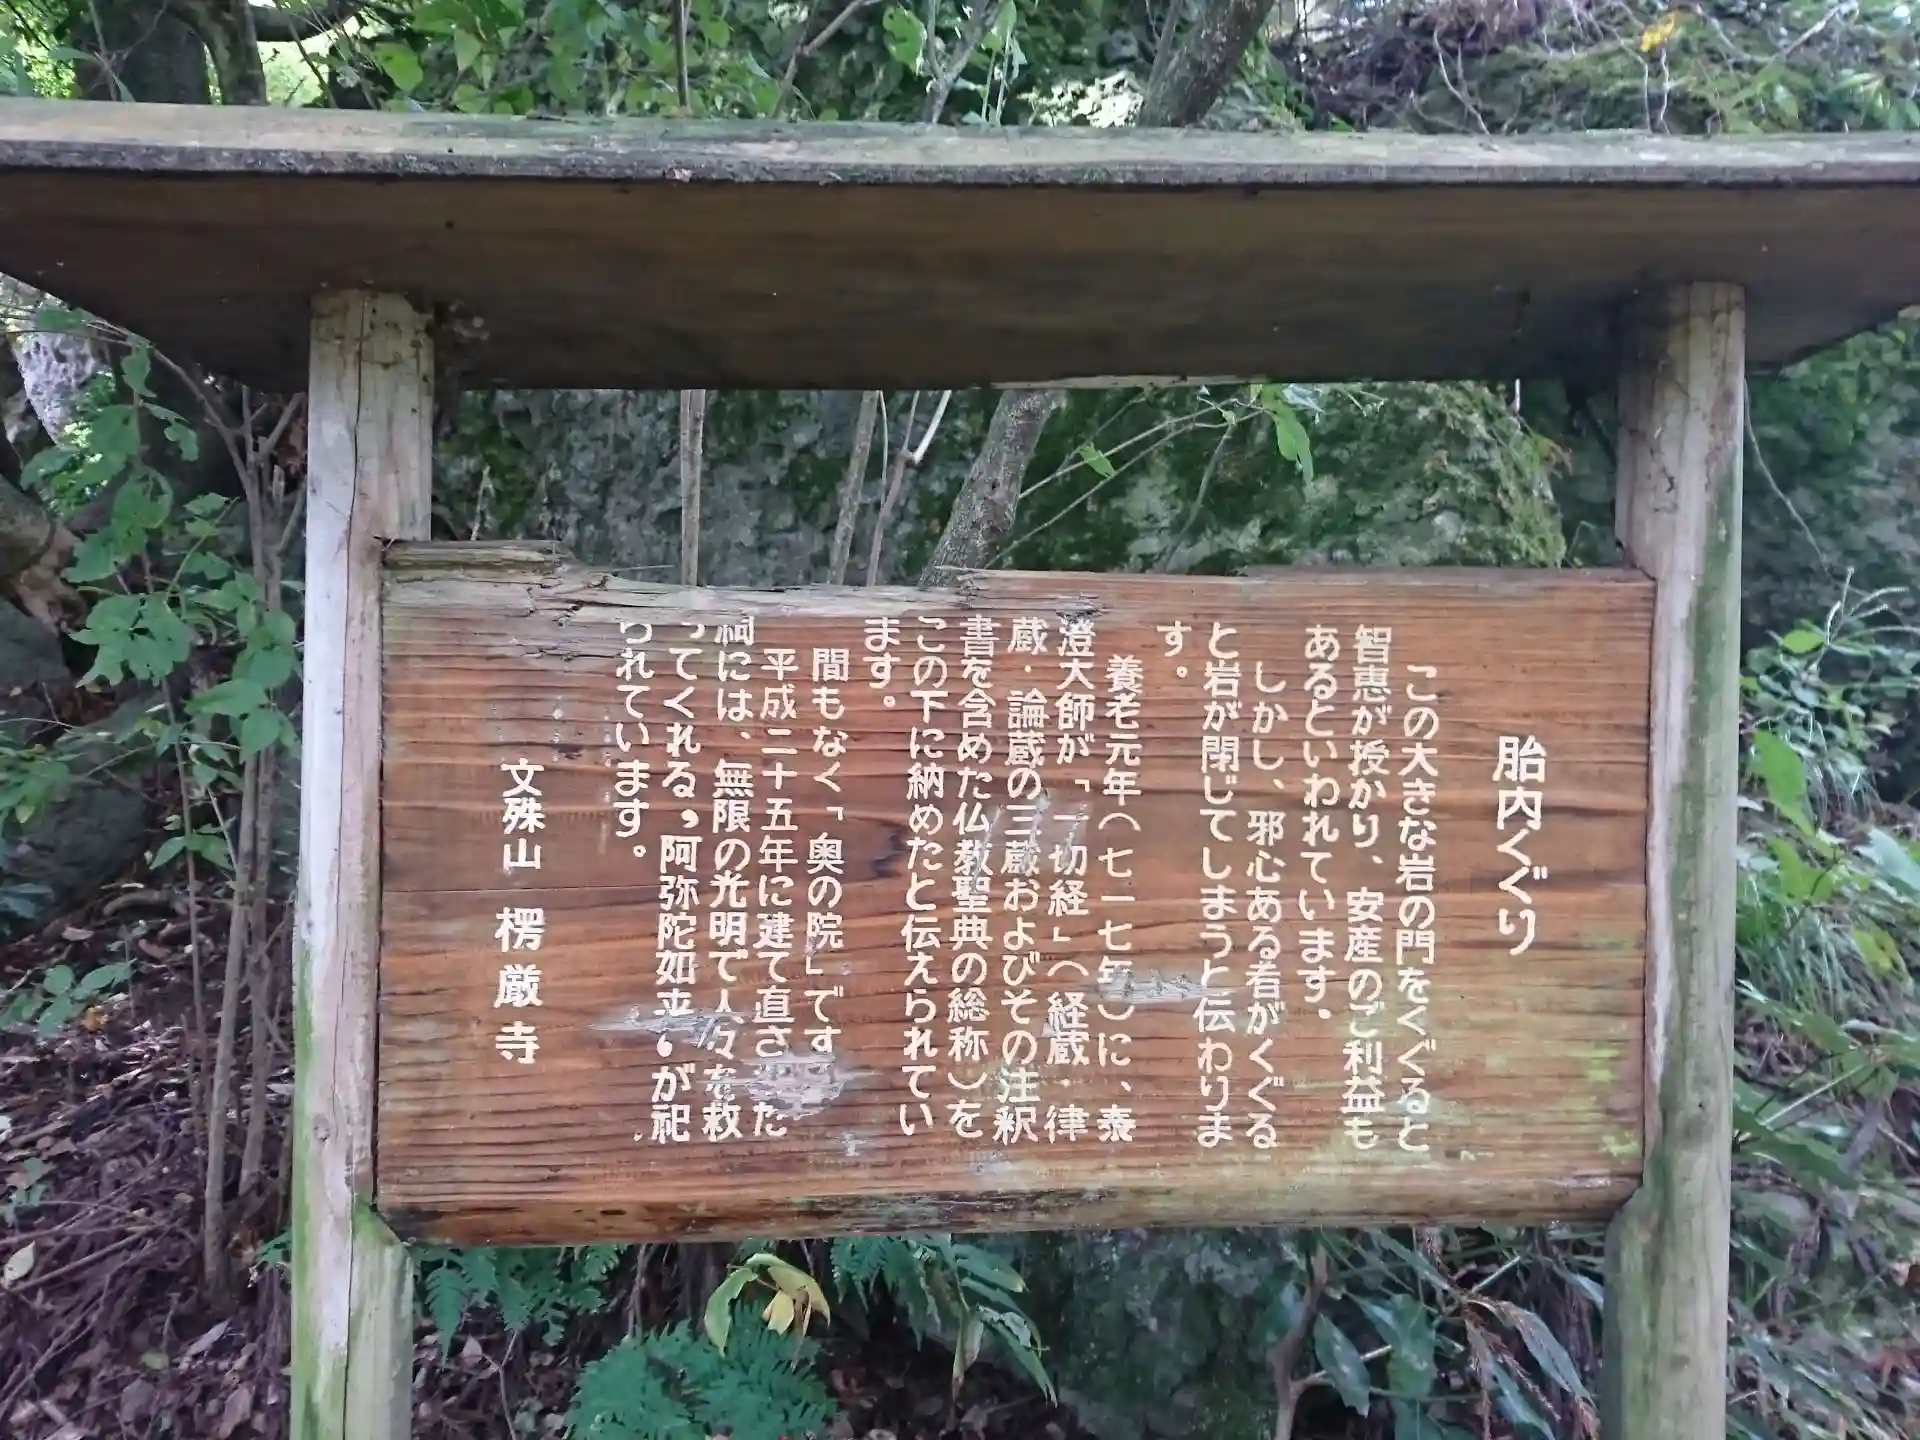 胎内くぐり
この大きな岩の門をくぐると
智恵が授かり、安産のご利益も
あるといわれています。
しかし、邪心ある者がくぐる
と岩が閉じてしまうと伝わりま
す。
養老元年(七一七年)に、泰
澄大師が「一切経」(経蔵・律
蔵・論蔵の三蔵およびその注釈
書を含めた仏教聖典の総称)を
この下に納めたと伝えられてい
ます。
間もなく「奥の院」です
平成二十五年に建て直された
祠には、無限の光明で人々を救
ってくれる,阿弥陀如来,が祀
られています。
文殊山 楞厳寺